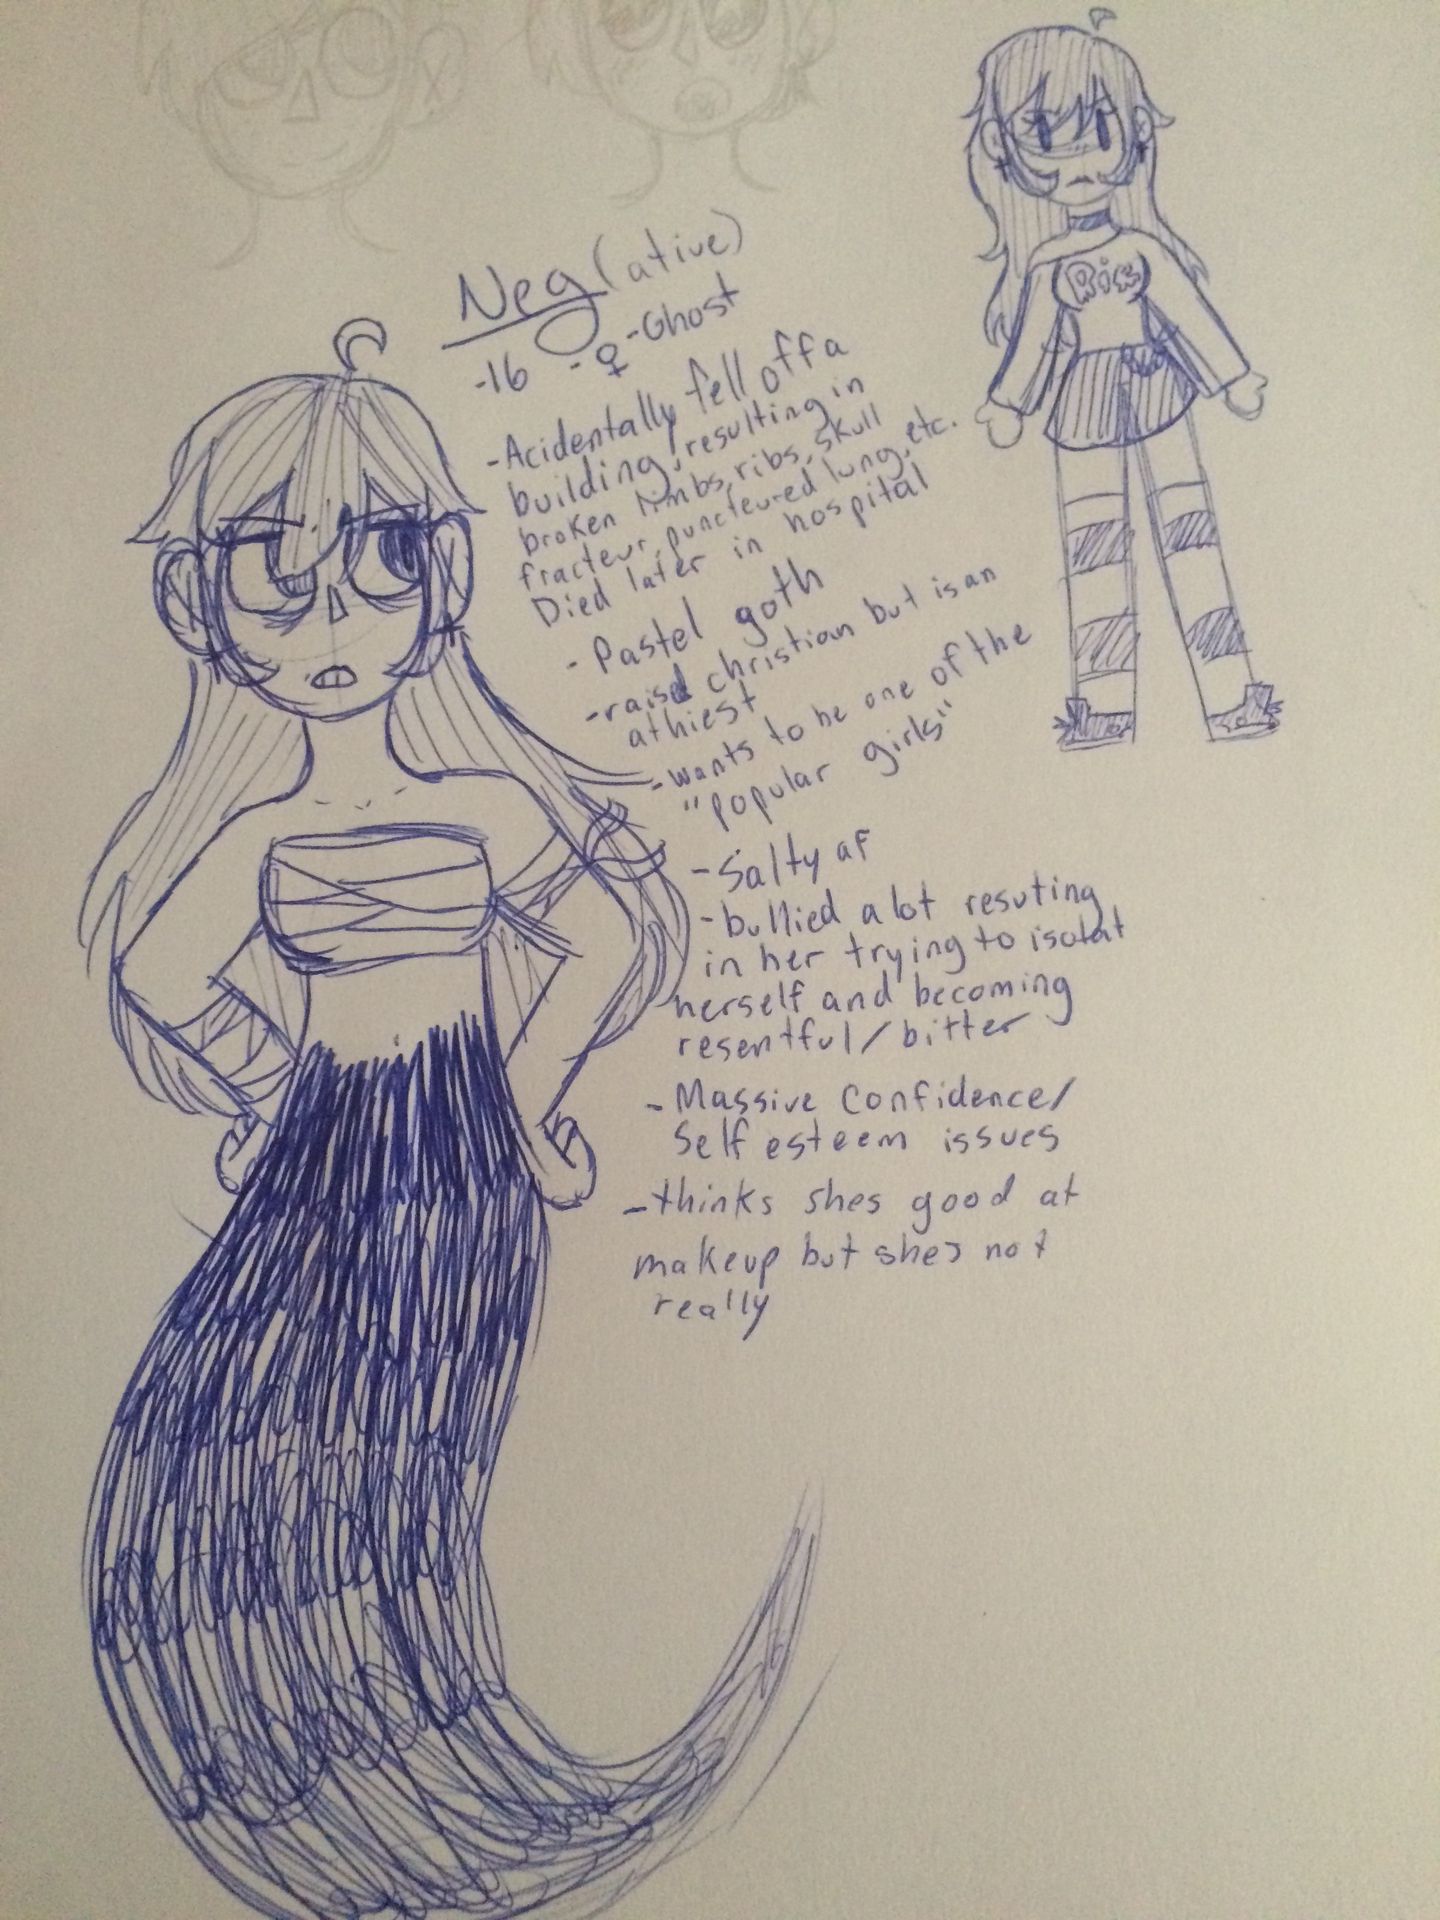 Neg(ative)
-16 -♀ -Ghost
-Acidentally fell off a
building, resulting in
broken limbs, ribs, skull
fracteur, punctured lung, etc.
Died later in hospital
-Pastel goth
-raised christian but is an
athiest
-wants to be one of the
"popular girls"
-Salty af
-bullied a lot resuting
in her trying to isolat
herself and becoming
resentful/bitter
-Massive Confidence/
Self esteem issues
-thinks shes good at
makeup but shes not
really